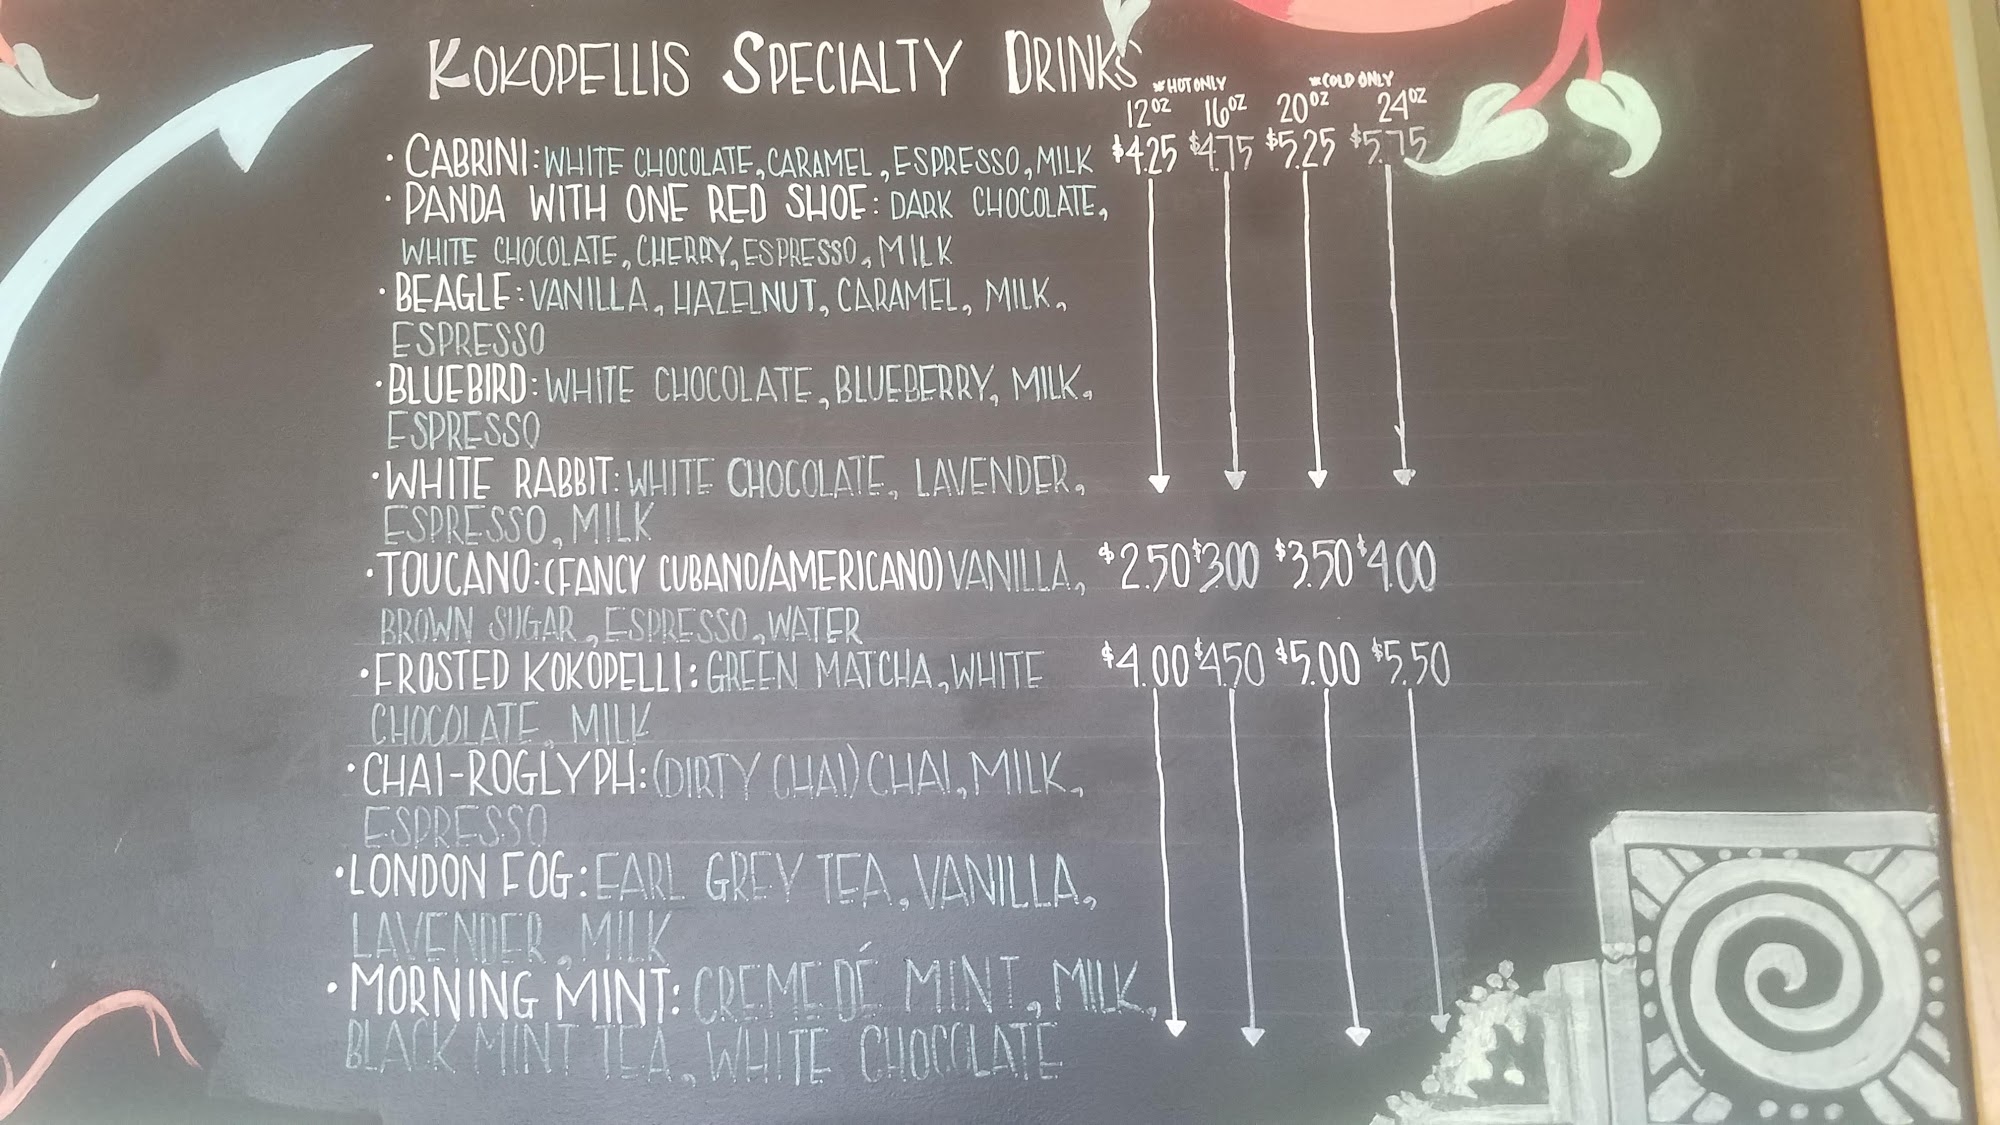 KOKOPELLIS SPECIALTY DRINKS
*HOT ONLY *COLD ONLY
12OZ 16OZ 20OZ 24OZ
• CABRINI: WHITE CHOCOLATE, CARAMEL, ESPRESSO, MILK $4.25 $4.75 $5.25 $5.75
• PANDA WITH ONE RED SHOE: DARK CHOCOLATE,
WHITE CHOCOLATE, CHERRY, ESPRESSO, MILK
• BEAGLE: VANILLA, HAZELNUT, CARAMEL, MILK,
ESPRESSO
• BLUEBIRD: WHITE CHOCOLATE, BLUEBERRY, MILK,
ESPRESSO
• WHITE RABBIT: WHITE CHOCOLATE, LAVENDER,
ESPRESSO, MILK
• TOUCANO: (FANCY CUBANO/AMERICANO) VANILLA, $2.50 $3.00 $3.50 $4.00
BROWN SUGAR, ESPRESSO, WATER
• FROSTED KOKOPELLI: GREEN MATCHA, WHITE $4.00 $4.50 $5.00 $5.50
CHOCOLATE, MILK
• CHAI-ROGLYPH: (DIRTY CHAI) CHAI, MILK,
ESPRESSO
• LONDON FOG: EARL GREY TEA, VANILLA,
LAVENDER, MILK
• MORNING MINT: CREME DÉ MINT, MILK,
BLACK MINT TEA, WHITE CHOCOLATE